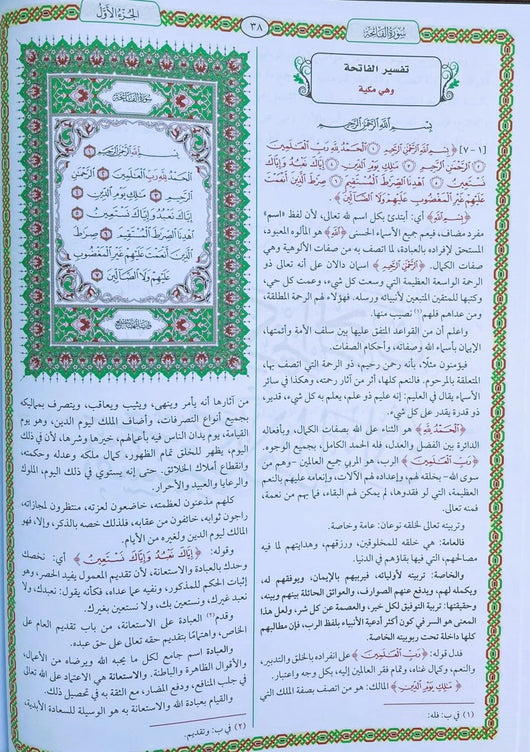 سورة الفاتحة
٣٨
الجزء الأول
تفسير الفاتحة
وهي مكية
بسم الله الرحمن الرحيم
[١-٧] ﴿بِسْمِ اللَّهِ الرَّحْمَنِ الرَّحِيمِ ۝١ الْحَمْدُ لِلَّهِ رَبِّ الْعَالَمِينَ
۝٢ الرَّحْمَنِ الرَّحِيمِ ۝٣ مَالِكِ يَوْمِ الدِّينِ ۝٤ إِيَّاكَ نَعْبُدُ وَإِيَّاكَ
نَسْتَعِينُ ۝٥ اهْدِنَا الصِّرَاطَ الْمُسْتَقِيمَ ۝٦ صِرَاطَ الَّذِينَ أَنْعَمْتَ
عَلَيْهِمْ غَيْرِ الْمَغْضُوبِ عَلَيْهِمْ وَلَا الضَّالِّينَ﴾
﴿بِسْمِ اللَّهِ﴾ أي: أبتدئ بكل اسم لله تعالى، لأن لفظ «اسم»
مفرد مضاف، فيعم جميع الأسماء الحسنى ﴿اللَّهِ﴾ هو المألوه المعبود،
المستحق لإفراده بالعبادة، لما اتصف به من صفات الألوهية وهي
صفات الكمال. ﴿الرَّحْمَنِ الرَّحِيمِ﴾ اسمان دالان على أنه تعالى ذو
الرحمة الواسعة العظيمة التي وسعت كل شيء، وعمت كل حي،
وكتبها للمتقين المتبعين لأنبيائه ورسله. فهؤلاء لهم الرحمة المطلقة،
ومن عداهم فلهم(١) نصيب منها.
واعلم أن من القواعد المتفق عليها بين سلف الأمة وأئمتها،
الإيمان بأسماء الله وصفاته، وأحكام الصفات.
فيؤمنون مثلًا، بأنه رحمن رحيم، ذو الرحمة التي اتصف بها،
المتعلقة بالمرحوم. فالنعم كلها، أثر من آثار رحمته، وهكذا في سائر
الأسماء يقال في العليم: إنه عليم ذو علم، يعلم به كل شيء، قدير،
ذو قدرة يقدر على كل شيء.
﴿الْحَمْدُ لِلَّهِ﴾ هو الثناء على الله بصفات الكمال، وبأفعاله
الدائرة بين الفضل والعدل، فله الحمد الكامل، بجميع الوجوه.
﴿رَبِّ الْعَالَمِينَ﴾ الرب، هو المربي جميع العالمين -وهم من
سوى الله- بخلقه لهم، وإعداده لهم الآلات، وإنعامه عليهم بالنعم
العظيمة، التي لو فقدوها، لم يمكن لهم البقاء، فما بهم من نعمة،
فمنه تعالى.
وتربيته تعالى لخلقه نوعان: عامة وخاصة.
فالعامة: هي خلقه للمخلوقين، ورزقهم، وهدايتهم لما فيه
مصالحهم، التي فيها بقاؤهم في الدنيا.
والخاصة: تربيته لأوليائه، فيربيهم بالإيمان، ويوفقهم له،
ويكمله لهم، ويدفع عنهم الصوارف، والعوائق الحائلة بينهم وبينه،
وحقيقتها: تربية التوفيق لكل خير، والعصمة عن كل شر، ولعل هذا
المعنى هو السر في كون أكثر أدعية الأنبياء بلفظ الرب، فإن مطالبهم
كلها داخلة تحت ربوبيته الخاصة.
فدل قوله: ﴿رَبِّ الْعَالَمِينَ﴾ على انفراده بالخلق والتدبير،
والنعم، وكمال غناه، وتمام فقر العالمين إليه، بكل وجه واعتبار.
﴿مَالِكِ يَوْمِ الدِّينِ﴾ المالك: هو من اتصف بصفة الملك التي
(١) في ب: فله:
سورة الفاتحة
بِسْمِ اللَّهِ الرَّحْمَنِ الرَّحِيمِ ۝١
الْحَمْدُ لِلَّهِ رَبِّ الْعَالَمِينَ ۝٢ الرَّحْمَنِ
الرَّحِيمِ ۝٣ مَالِكِ يَوْمِ الدِّينِ ۝٤
إِيَّاكَ نَعْبُدُ وَإِيَّاكَ نَسْتَعِينُ ۝٥
اهْدِنَا الصِّرَاطَ الْمُسْتَقِيمَ ۝٦ صِرَاطَ
الَّذِينَ أَنْعَمْتَ عَلَيْهِمْ غَيْرِ الْمَغْضُوبِ
عَلَيْهِمْ وَلَا الضَّالِّينَ ۝٧
من آثارها أنه يأمر وينهى، ويثيب ويعاقب، ويتصرف بمماليكه
بجميع أنواع التصرفات، وأضاف الملك ليوم الدين، وهو يوم
القيامة، يوم يدان الناس فيه بأعمالهم، خيرها وشرها، لأن في ذلك
اليوم، يظهر للخلق تمام الظهور، كمال ملكه وعدله وحكمته،
وانقطاع أملاك الخلائق. حتى إنه يستوي في ذلك اليوم، الملوك
والرعايا والعبيد والأحرار.
كلهم مذعنون لعظمته، خاضعون لعزته، منتظرون لمجازاته،
راجون ثوابه، خائفون من عقابه، فلذلك خصه بالذكر، وإلا، فهو
المالك ليوم الدين ولغيره من الأيام.
وقوله: ﴿إِيَّاكَ نَعْبُدُ وَإِيَّاكَ نَسْتَعِينُ﴾ أي: نخصك
وحدك بالعبادة والاستعانة، لأن تقديم المعمول يفيد الحصر، وهو
إثبات الحكم للمذكور، ونفيه عما عداه، فكأنه يقول: نعبدك، ولا
نعبد غيرك، ونستعين بك، ولا نستعين بغيرك.
وقدم(٢) العبادة على الاستعانة، من باب تقديم العام على
الخاص، واهتمامًا بتقديم حقه تعالى على حق عبده.
والعبادة اسم جامع لكل ما يحبه الله ويرضاه من الأعمال،
والأقوال الظاهرة والباطنة. والاستعانة هي الاعتماد على الله تعالى
في جلب المنافع، ودفع المضار، مع الثقة به في تحصيل ذلك.
والقيام بعبادة الله والاستعانة به هو الوسيلة للسعادة الأبدية،
(٢) في ب: وتقديم.